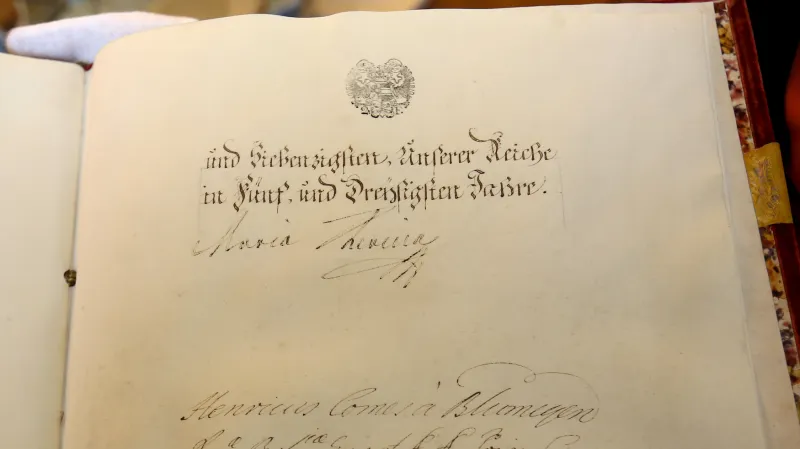 und Siebenzigsten, Unserer Reiche
in Fünf, und Dreyßigsten Jahre.
Maria Theresia
Henricus Comes à Blümegen